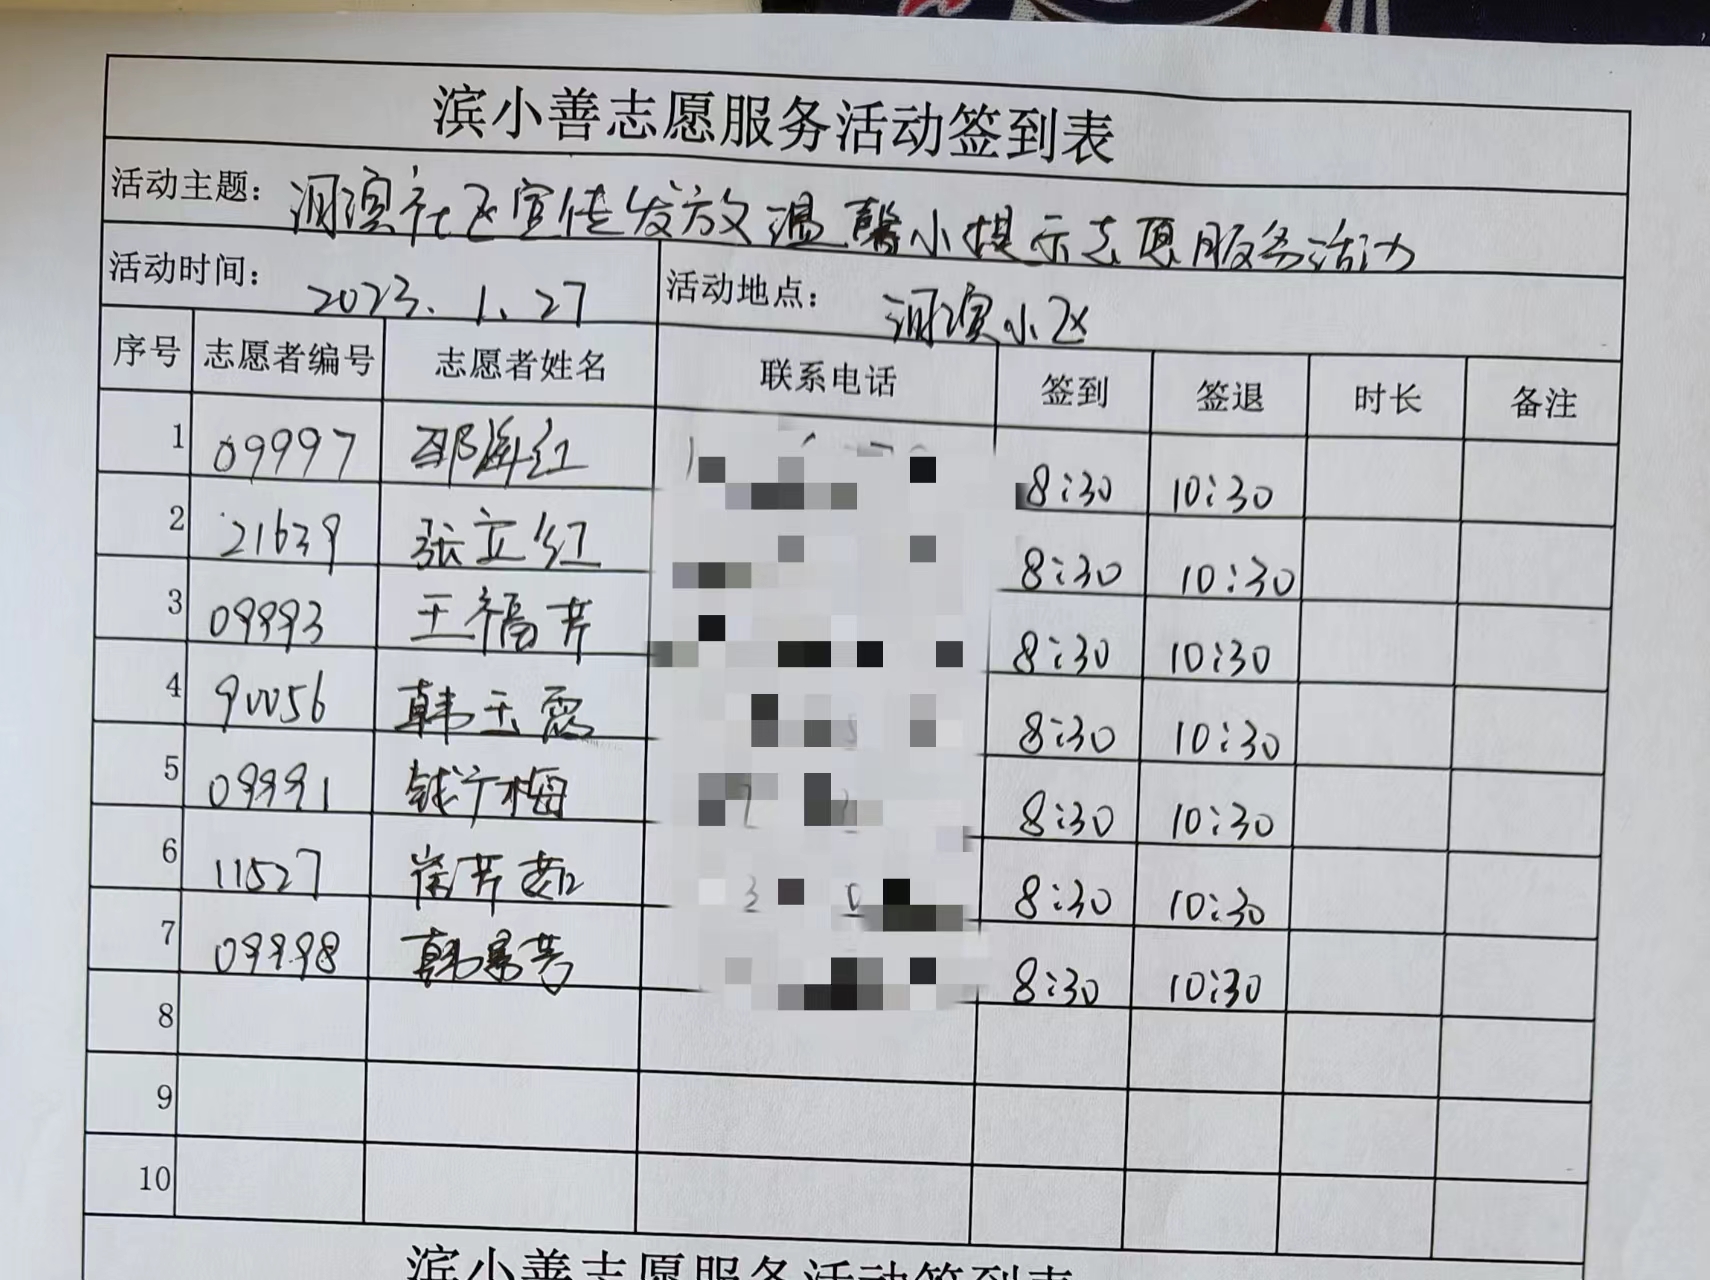 滨小善志愿服务活动签到表
活动主题：泂滨社区宣传发放温馨小提示志愿服务活动
活动时间：2023.1.27 活动地点：泂滨小区
序号 志愿者编号 志愿者姓名 联系电话 签到 签退 时长 备注
1 09997 邵海红 8:30 10:30
2 21639 张立红 8:30 10:30
3 09993 王福芹 8:30 10:30
4 90056 韩玉霞 8:30 10:30
5 09991 钱广梅 8:30 10:30
6 11527 崔芹茹 8:30 10:30
7 09998 韩 芳 8:30 10:30
8
9
10
滨小善志愿服务活动签到表